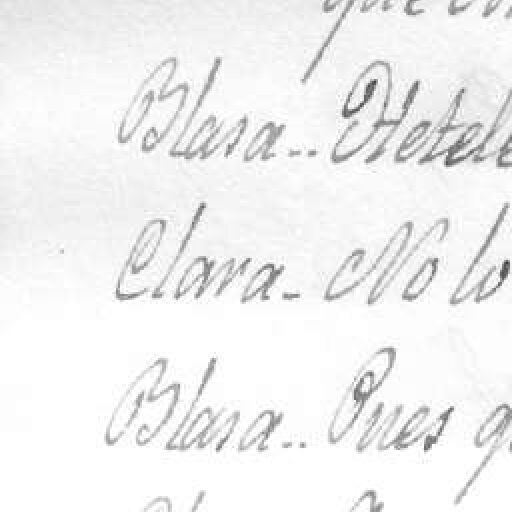 que
Blasa.. Hetele
Clara- No lo
Blasa.. Pues